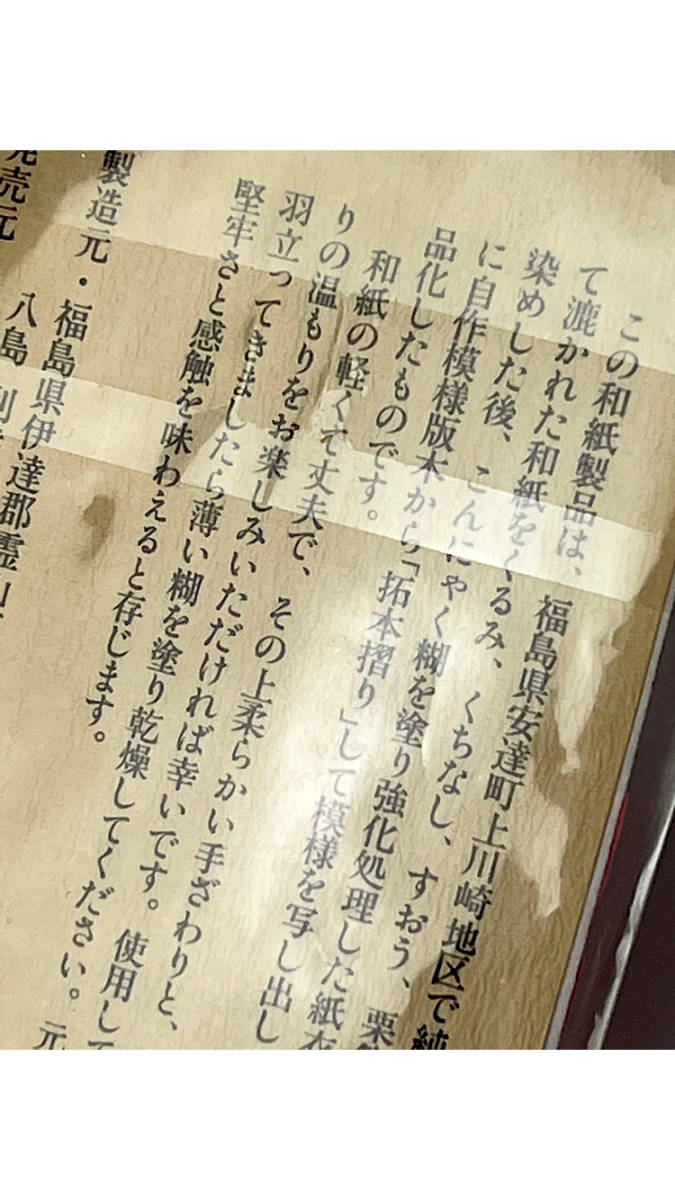 この和紙製品は、福島県安達町上川崎地区で純
て漉かれた和紙をくるみ、くちなし、すおう、栗
染めした後、こんにゃく糊を塗り強化処理した紙衣
に自作模様版木から「拓本摺り」して模様を写し出し
品化したものです。
和紙の軽くて丈夫で、その上柔らかい手ざわりと、
りの温もりをお楽しみいただければ幸いです。使用して
羽立ってきましたら薄い糊を塗り乾燥してください。元
堅牢さと感触を味わえると存じます。
製造元・福島県伊達郡霊山
八島
発売元